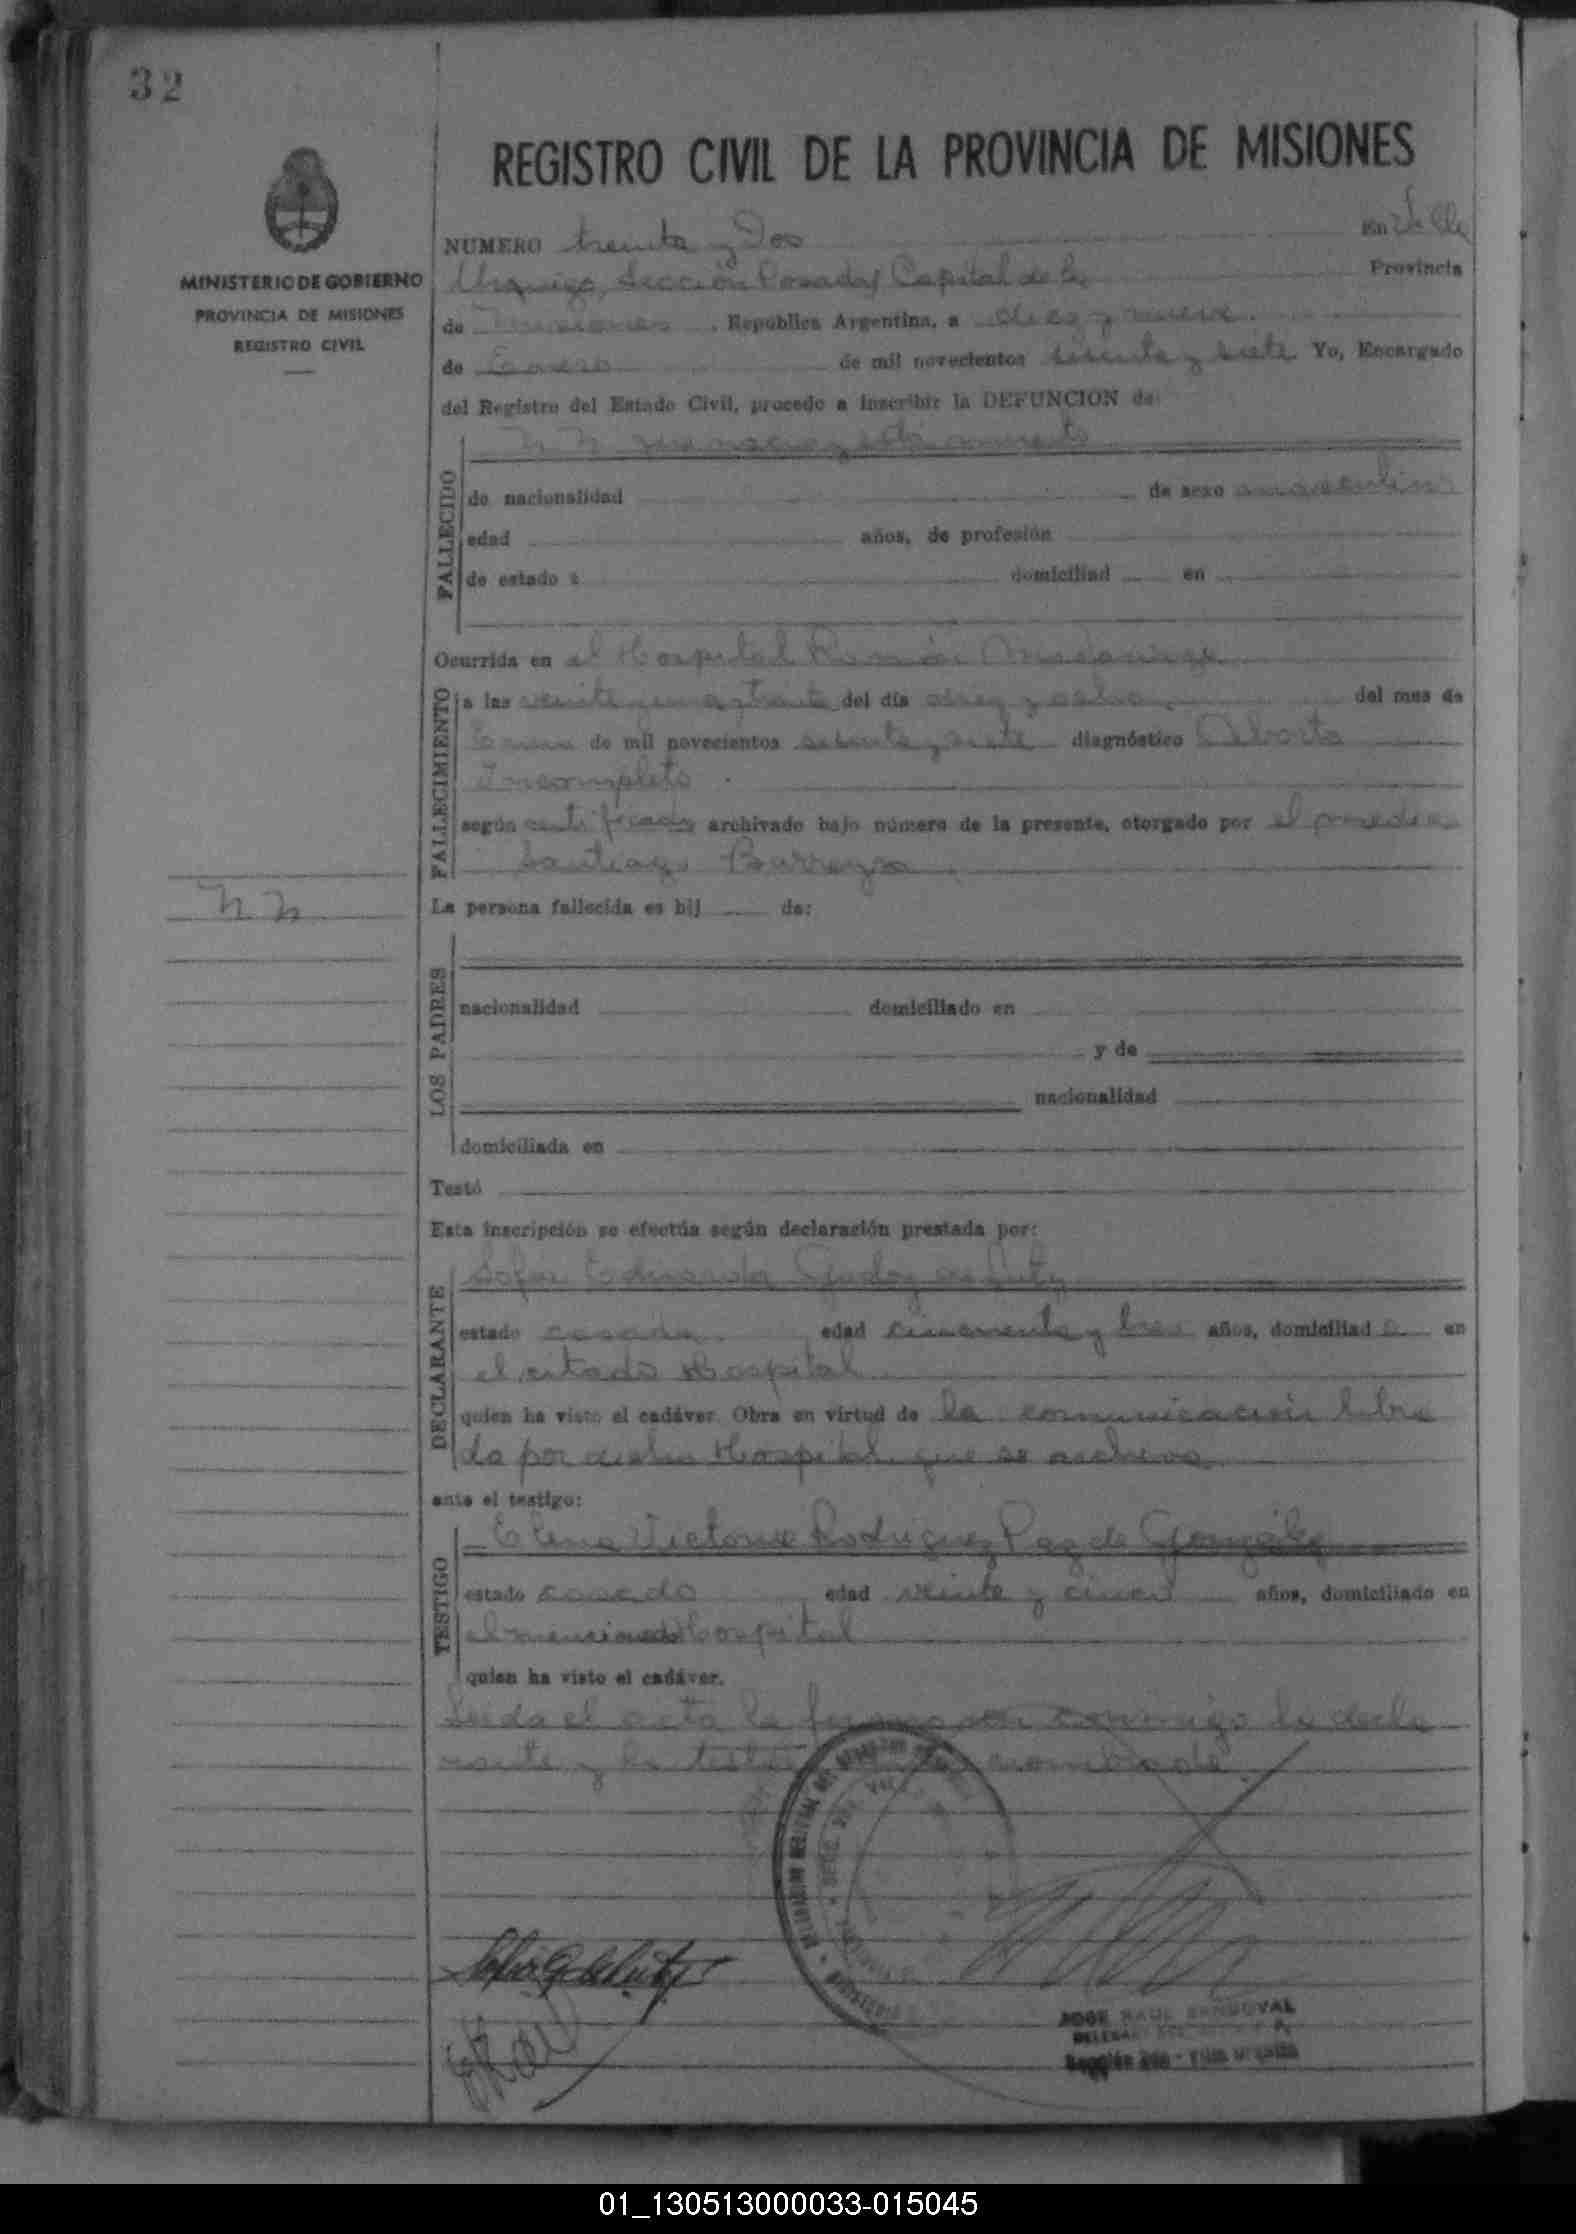 32
REGISTRO CIVIL DE LA PROVINCIA DE MISIONES
MINISTERIO DE GOBIERNO
PROVINCIA DE MISIONES
REGISTRO CIVIL
NUMERO treinta y Dos En Villa
Urquiza, Sección Posadas Capital de la Provincia
de Misiones. República Argentina, a diez y nueve
de Enero de mil novecientos sesenta y siete Yo, Encargado
del Registro del Estado Civil, procedo a inscribir la DEFUNCION de:
FALLECIDO
N N muerto
de nacionalidad de sexo masculino
edad años, de profesión
de estado domiciliad en
Ocurrida en el Hospital Ramón Madariaga
FALLECIMIENTO
a las veinte y una y treinta del día diez y ocho, del mes de
Enero de mil novecientos sesenta y siete diagnóstico Aborto
Incompleto.
según certificado archivado bajo número de la presente, otorgado por el médico
Santiago Barreyro.
N N
La persona fallecida es hij de:
LOS PADRES
nacionalidad domiciliado en
y de
nacionalidad
domiciliada en
Testó
Esta inscripción se efectúa según declaración prestada por:
DECLARANTE
Sofia Eduarda Godoy de
estado casada edad cincuenta y tres años, domiciliad a en
el citado Hospital.
quien ha visto el cadáver. Obra en virtud de la comunicación libra
da por dicho Hospital que se archiva
ante el testigo:
TESTIGO
Elena Victoria Rodriguez Paz de González
estado casado edad veinte y cinco años, domiciliado en
el mencionado Hospital
quien ha visto el cadáver.
Leida el acta la firmaron conmigo la decla
rante y la testigo nombrada.
JOSE RAUL SANDOVAL
Sección 2da - Villa Urquiza
01_130513000033-015045